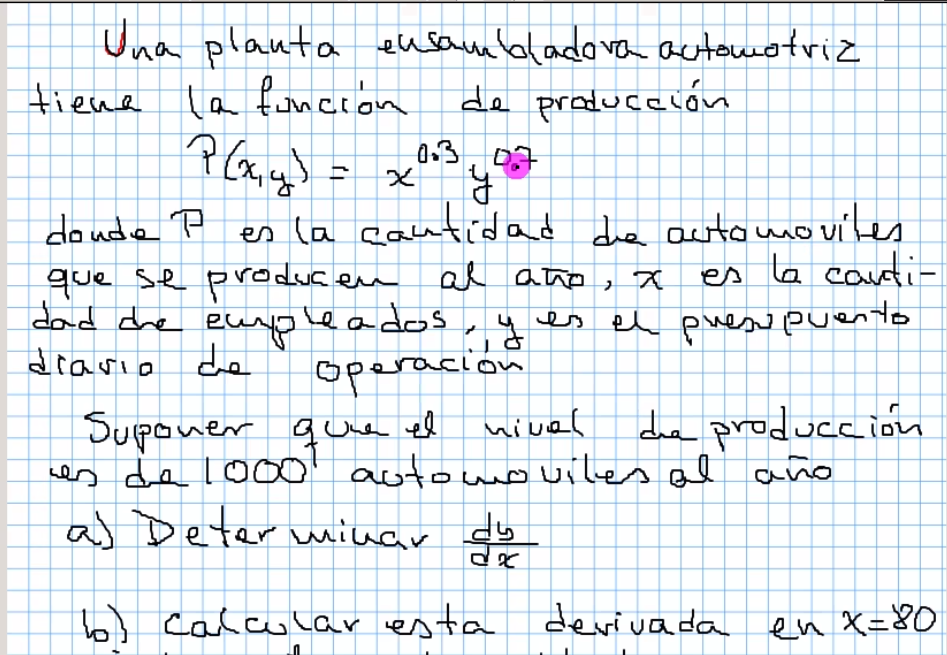 Una planta ensambladora automotriz
tiene la función de producción
P(x,y) = x^0.3 y^0.7
donde P es la cantidad de automoviles
que se producen al año, x es la canti-
dad de empleados, y es el presupuesto
diario de operación
Suponer que el nivel de producción
es de 1000 automoviles al año
a) Determinar dy/dx
b) calcular esta derivada en x=80